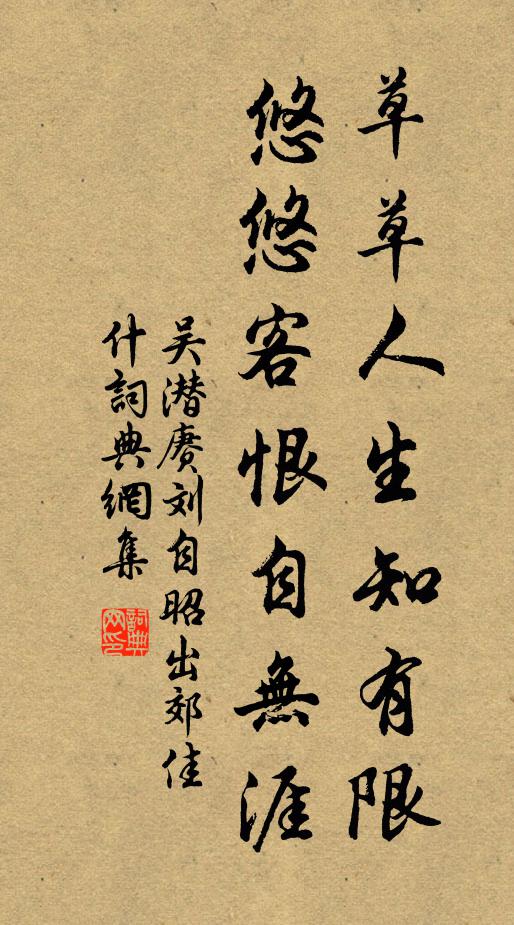 草草人生知有限
悠悠客恨自無涯
吴潜赓刘自昭出郊佳
什詞典網集
詞典網印